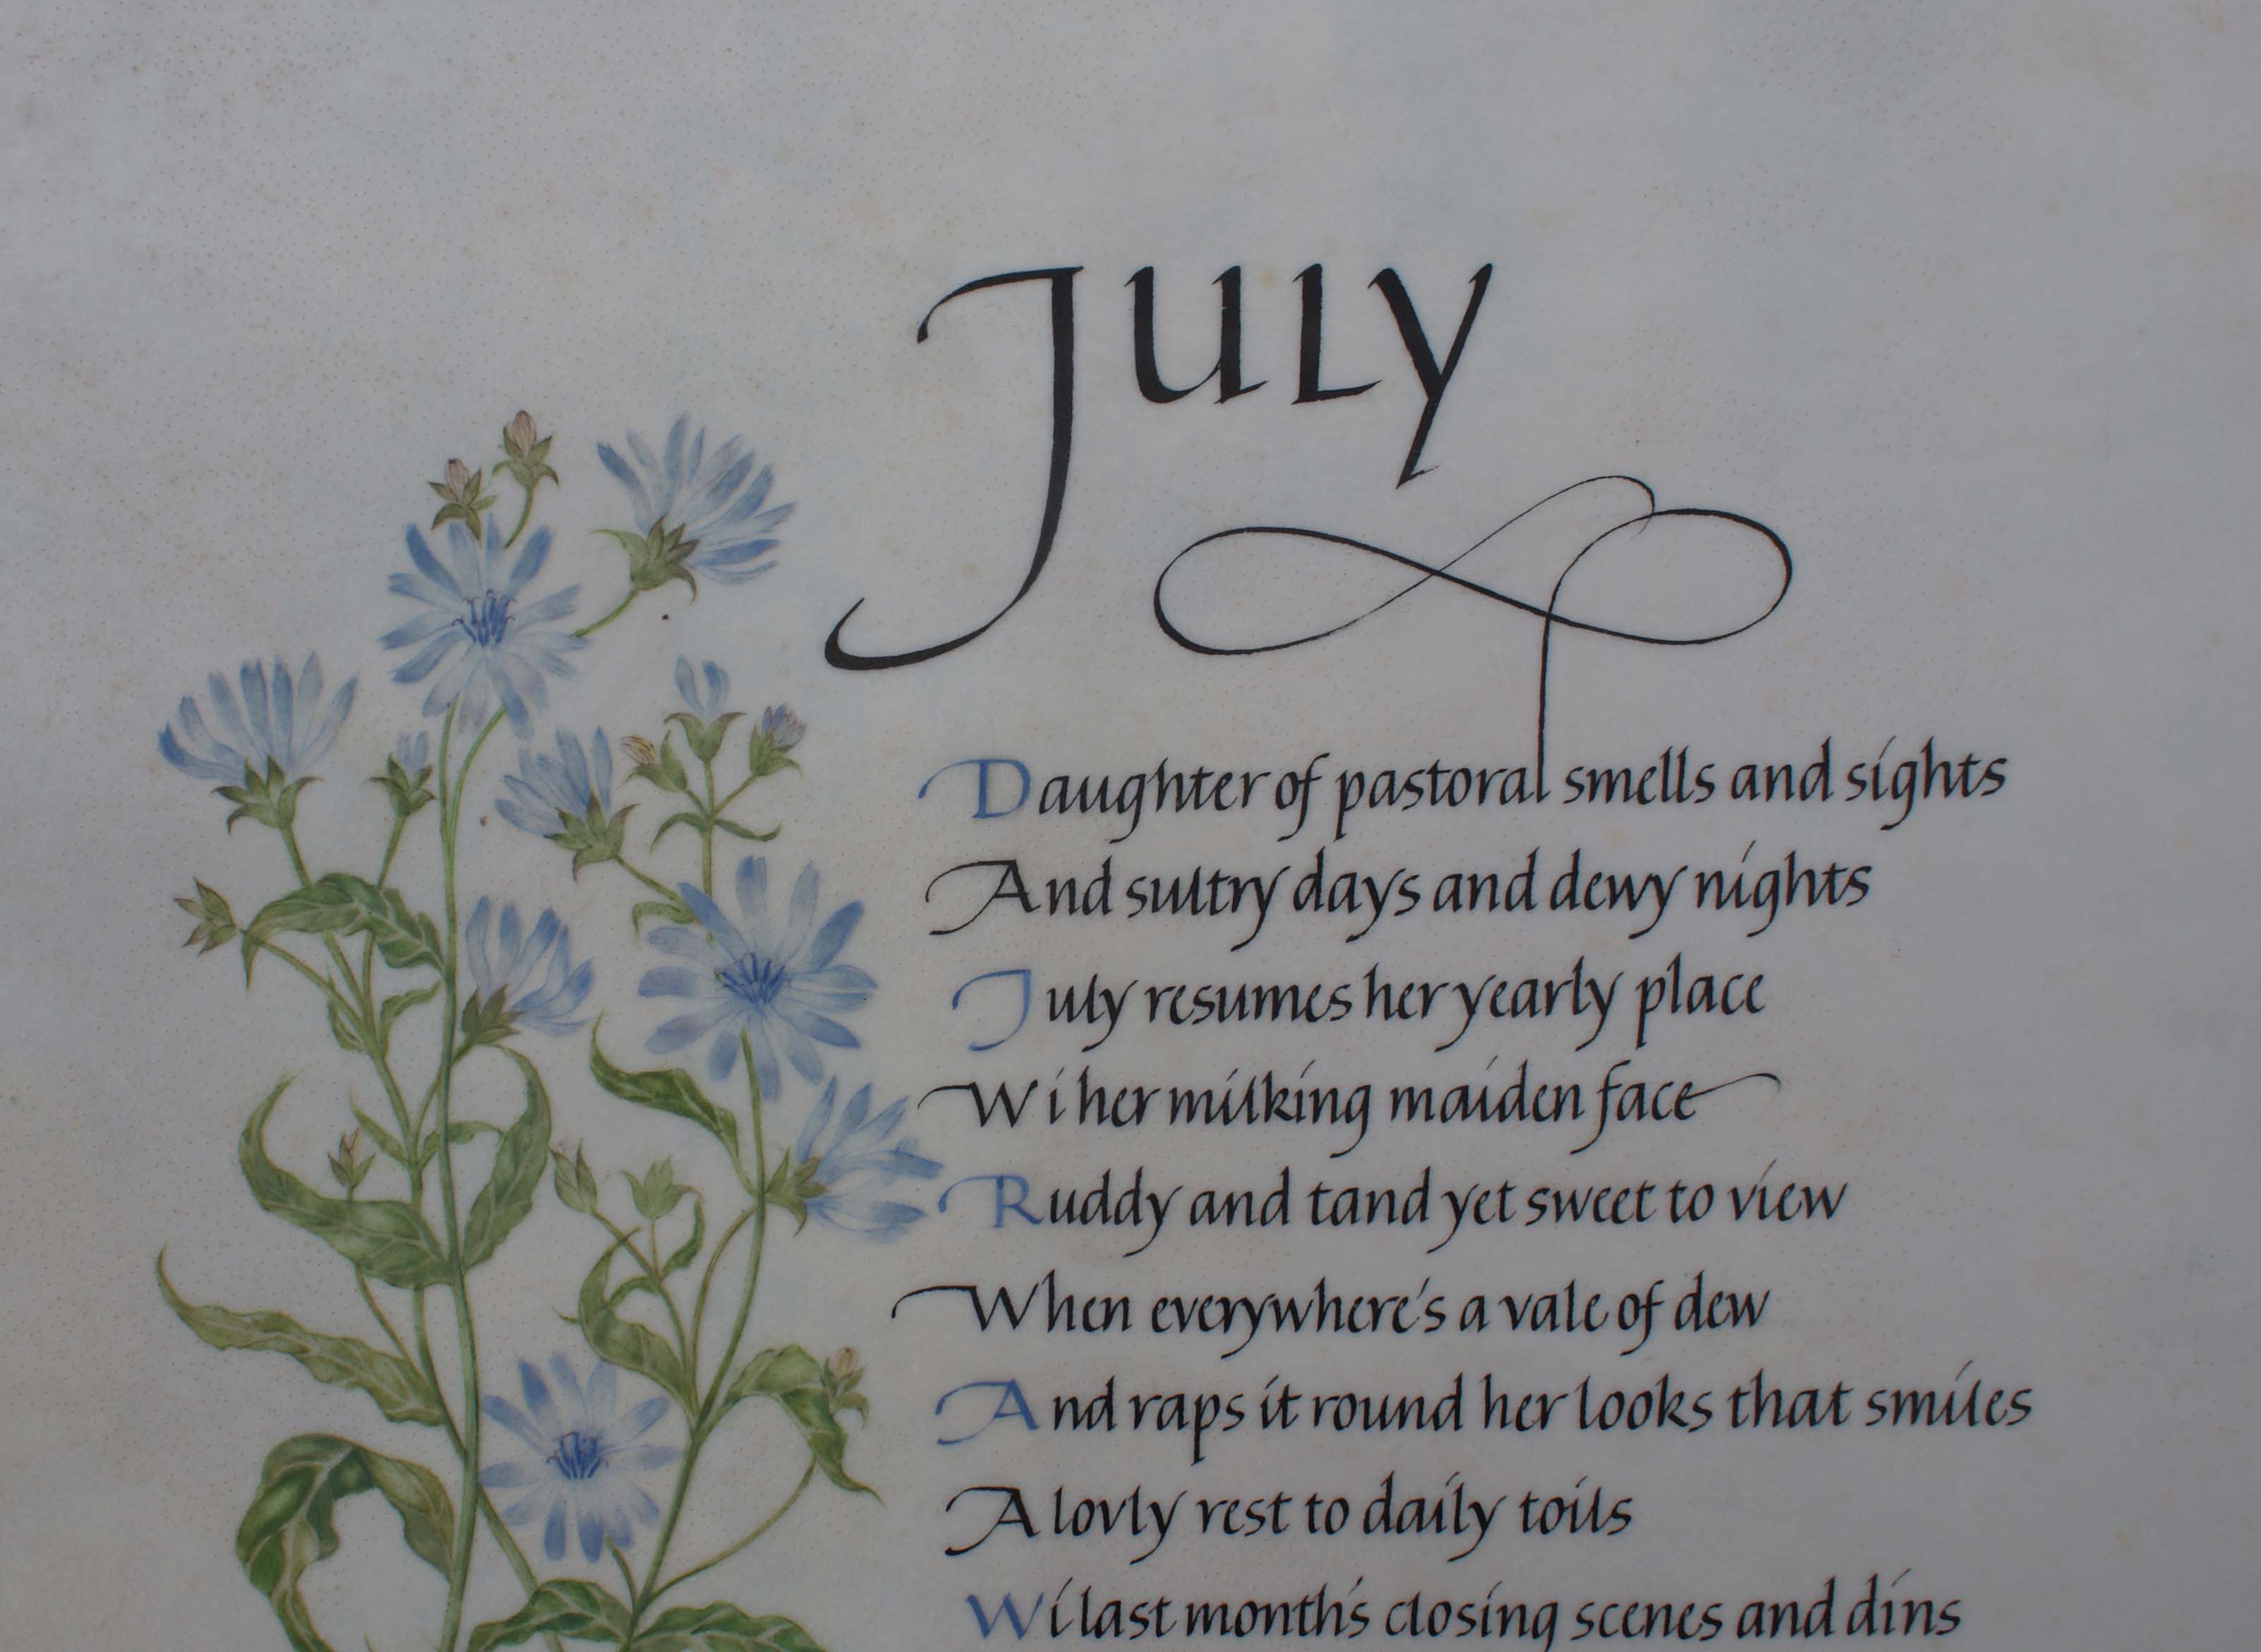 July
Daughter of pastoral smells and sights
And sultry days and dewy nights
July resumes her yearly place
Wi her milking maiden face
Ruddy and tand yet sweet to view
When everywhere's a vale of dew
And raps it round her looks that smiles
A lovly rest to daily toils
Wi last month's closing scenes and dins